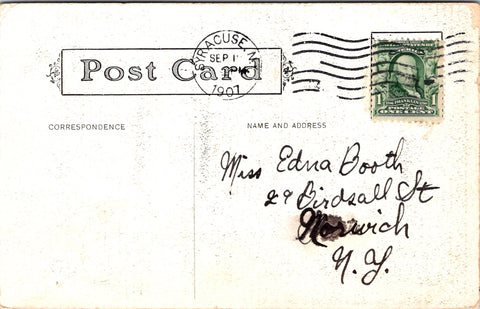 SYRACUSE, N.
SEP 1
PM
1907
Post Card
FRANKLIN
POSTAGE
1 ONE CENT
CORRESPONDENCE
NAME AND ADDRESS
Miss Edna Booth
29 Birdsall St
Norwich
N.Y.